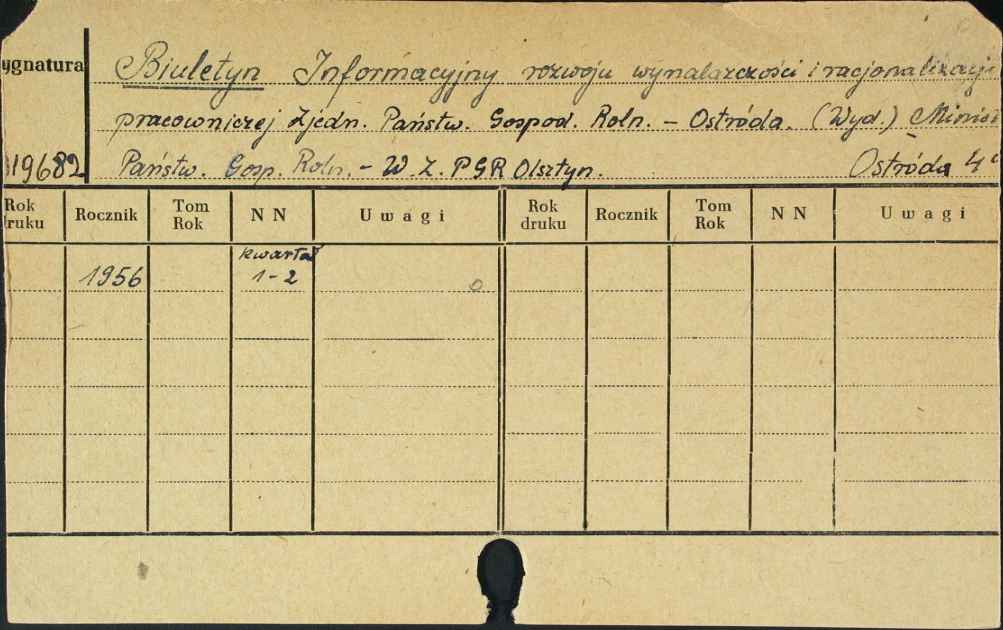 ygnatura
Biuletyn Informacyjny rozwoju wynalazczości i racjonalizacji
pracowniczej Zjedn. Państw. Gospod. Roln. - Ostróda. (Wyd.) Minist
19682 Państw. Gosp. Roln. - W. Z. PGR Olsztyn. Ostróda 4°
Rok druku Rocznik Tom Rok NN Uwagi Rok druku Rocznik Tom Rok NN Uwagi
kwartał
1956 1-2 0